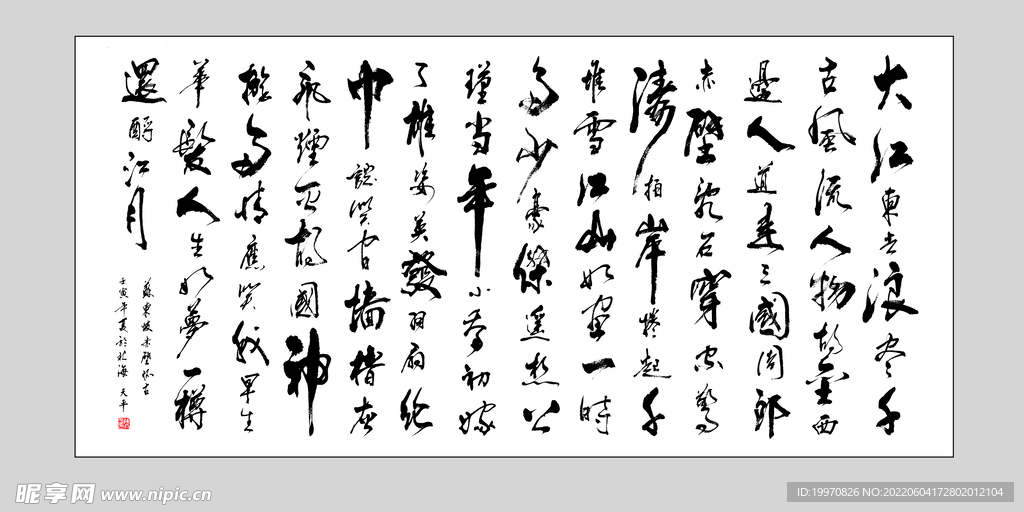 大江東去浪尽千
古風流人物故壘西
邊人道是三國周郎
赤壁亂石穿空驚
濤拍岸捲起千
堆雪江山如画一時
多少豪傑遥想公
瑾当年小喬初嫁
了雄姿英發羽扇纶
巾談笑间墙櫓灰
飛煙灭故國神
遊多情應笑我早生
華髮人生如夢一樽
還酹江月
蘇東坡赤壁怀古
壬寅年夏於北海 天平
昵享网 www.nipic.cn
ID:19970826 NO:20220604172802012104